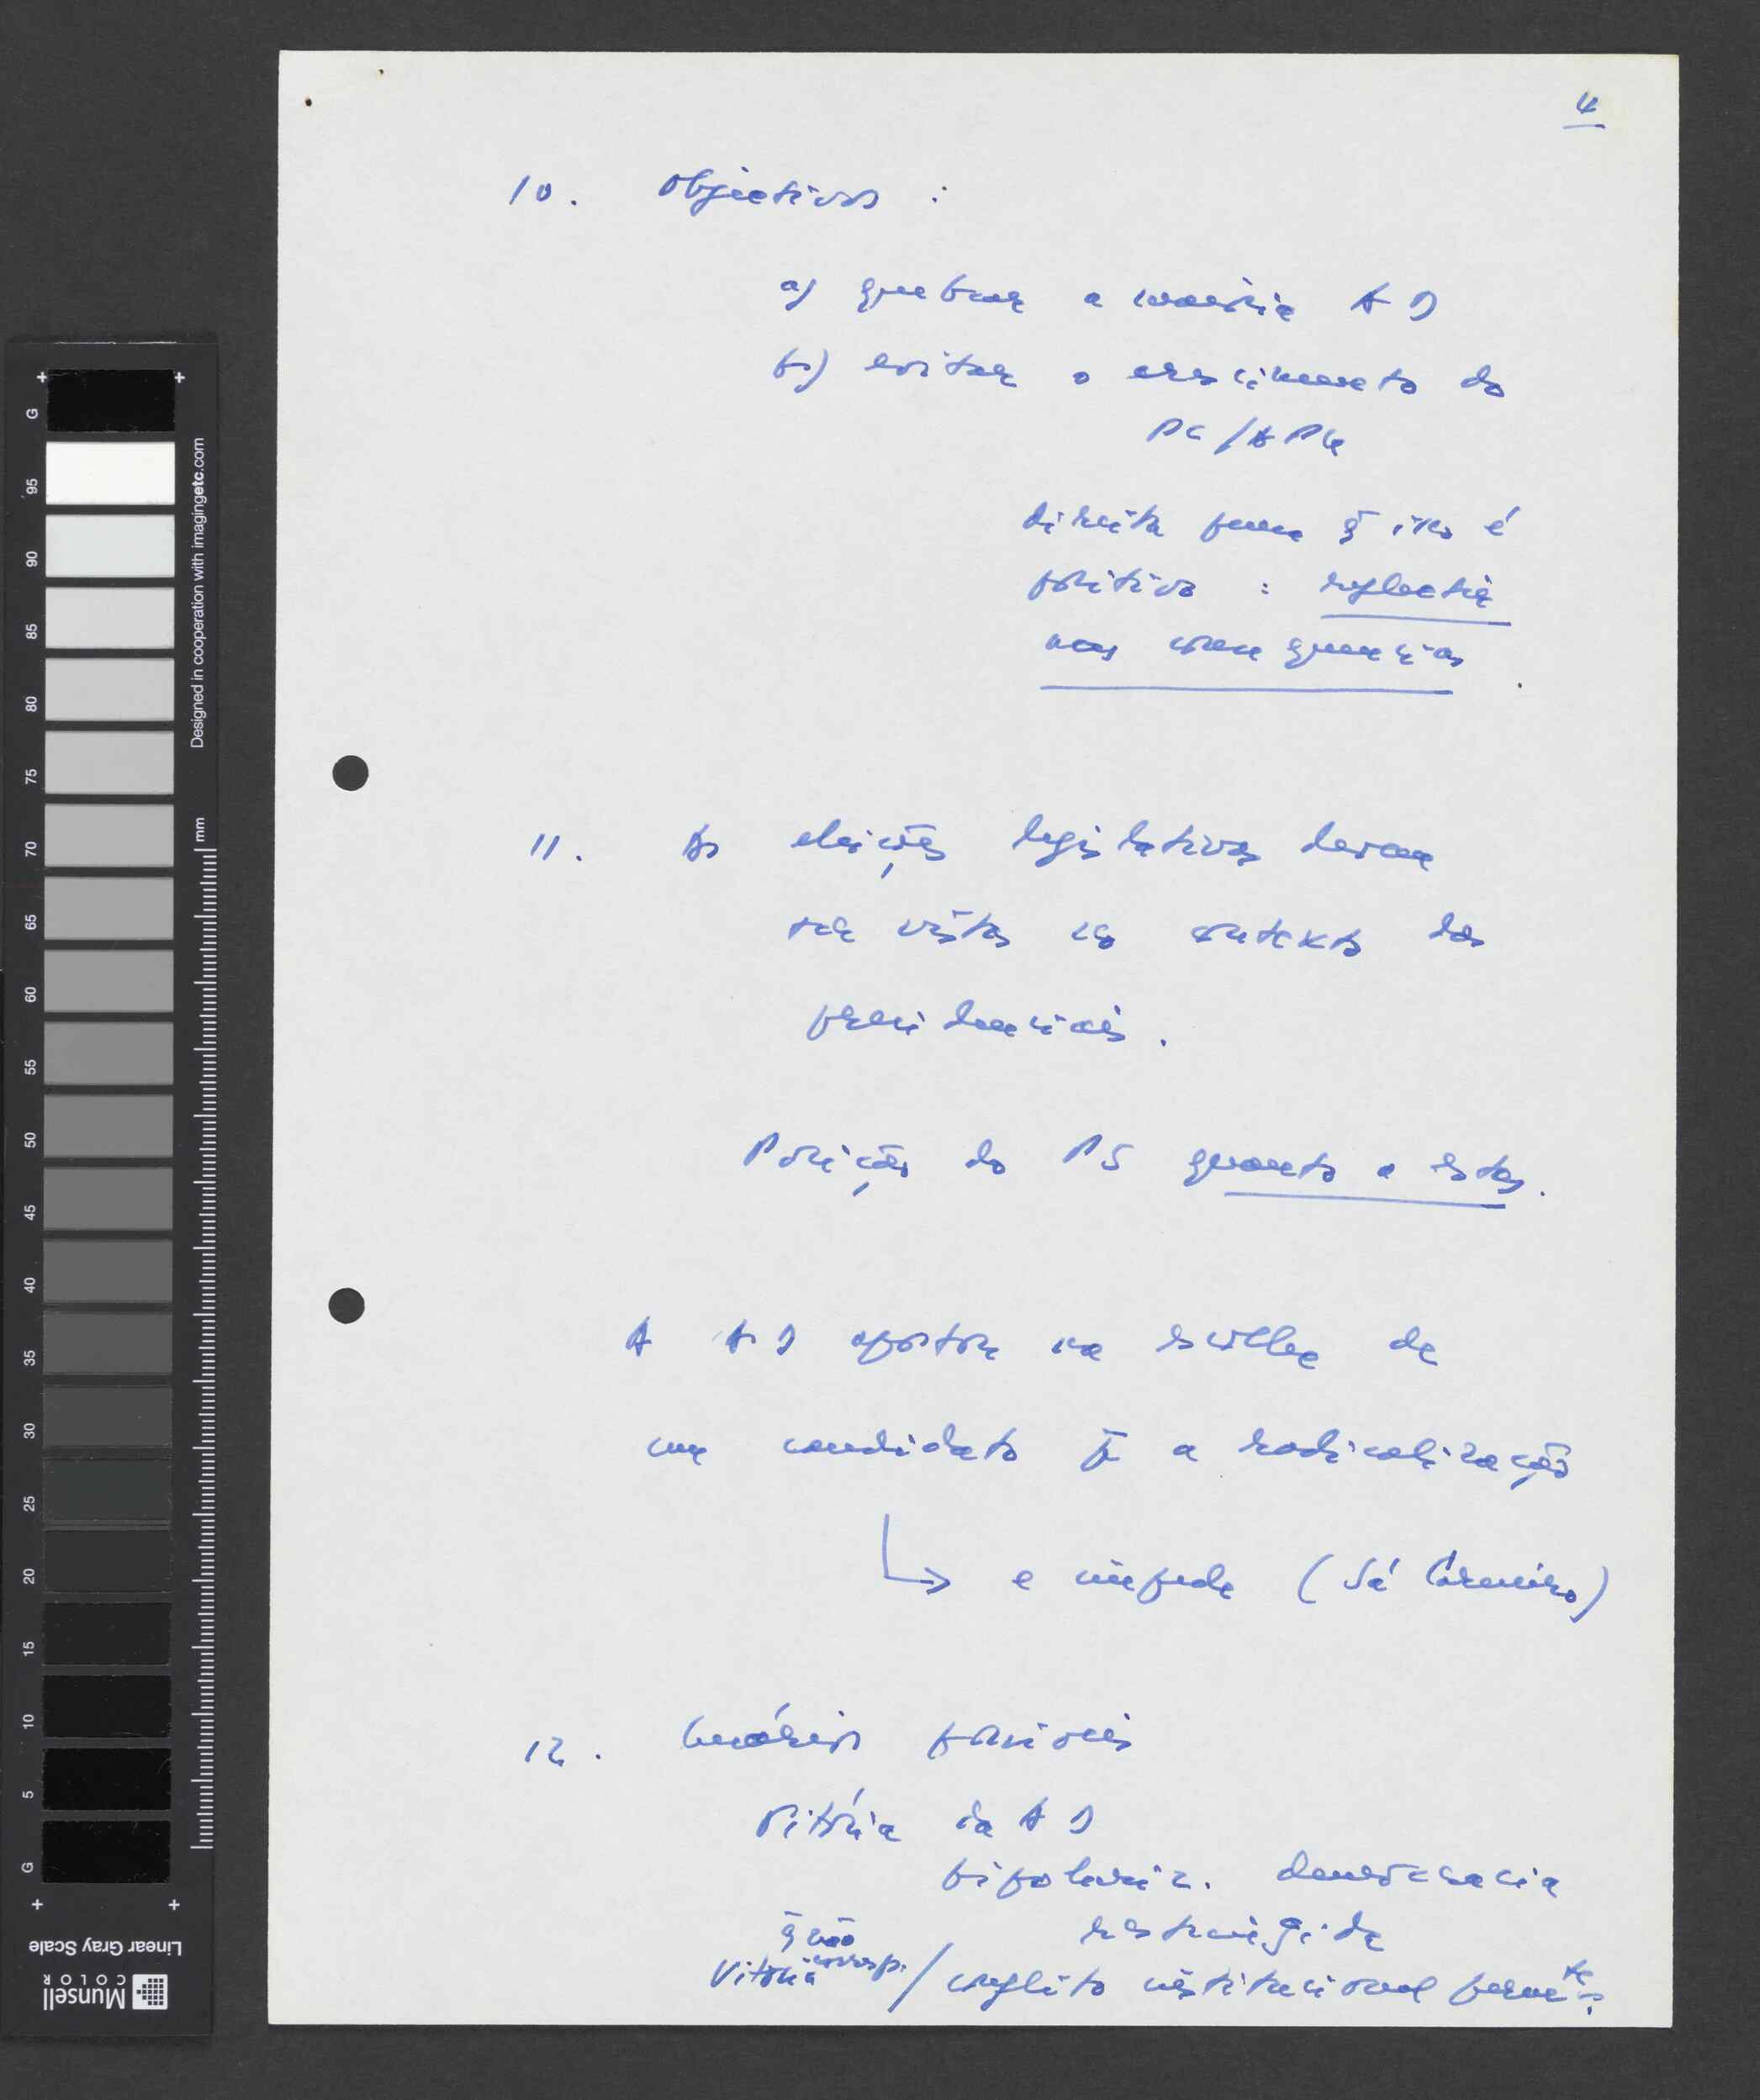 4
10. Objectivos :
a) quebrar a maioria AD
b) evitar o crescimento do
PC/APU
direita pensa q̃ isso é
positivo : reflectir
nas consequências.
11. As eleições legislativas devem
ser vistas no contexto das
presidenciais.
Posição do PS quanto a estas.
A AD aposta na escolha de
um candidato p̃ a radicalização
e impede (Sá Carneiro)
12. Cenários possíveis
Vitória da AD
bipolariz. democracia
restringida
q̃ não
Vitória corresp. / conflito institucional permte.
G 95 90 85 80 75 70 65 60 55 50 45 40 35 30 25 20 15 10 5 G
Designed in cooperation with imagingetc.com
mm
Linear Gray Scale
Munsell
COLOR